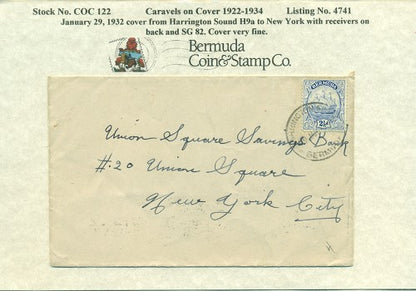 Stock No. COC 122 Caravels on Cover 1922-1934 Listing No. 4741
January 29, 1932 cover from Harrington Sound H9a to New York with receivers on
back and SG 82. Cover very fine.
Bermuda
Coin & Stamp Co.
BERMUDA
Union Square Savings Bank
#20 Union Square
New York
City